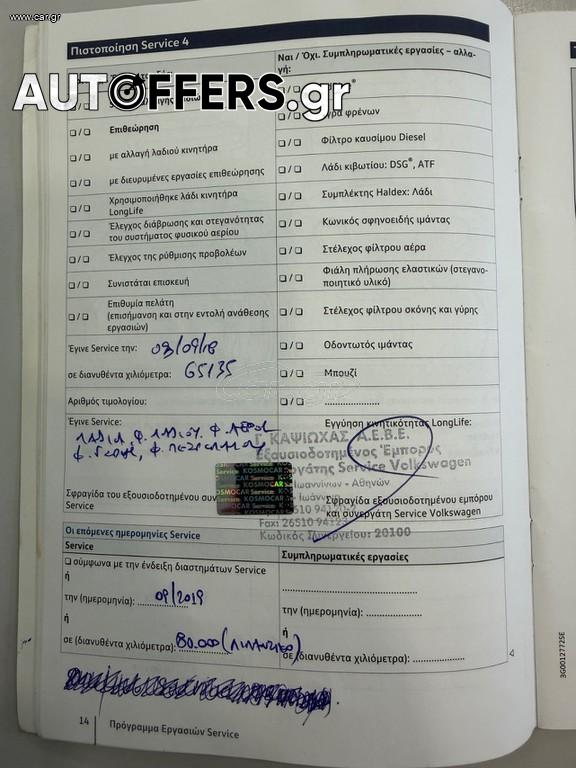 www.car.gr
Πιστοποίηση Service 4
Ναι / Όχι. Συμπληρωματικές εργασίες – αλλα-
γή:
AUTOFFERS.gr
❏ / ❏ Επιθεώρηση
❏ / ❏ με αλλαγή λαδιού κινητήρα
❏ / ❏ με διευρυμένες εργασίες επιθεώρησης
❏ / ❏ Χρησιμοποιήθηκε λάδι κινητήρα
LongLife
❏ / ❏ Έλεγχος διάβρωσης και στεγανότητας
του συστήματος φυσικού αερίου
❏ / ❏ Έλεγχος της ρύθμισης προβολέων
❏ / ❏ Συνιστάται επισκευή
❏ / ❏ Επιθυμία πελάτη
(επισήμανση και στην εντολή ανάθεσης
εργασιών)
φρένων
❏ / ❏ Φίλτρο καυσίμου Diesel
❏ / ❏ Λάδι κιβωτίου: DSG®, ATF
❏ / ❏ Συμπλέκτης Haldex: Λάδι
❏ / ❏ Κωνικός σφηνοειδής ιμάντας
❏ / ❏ Στέλεχος φίλτρου αέρα
❏ / ❏ Φιάλη πλήρωσης ελαστικών (στεγανο-
ποιητικό υλικό)
❏ / ❏ Στέλεχος φίλτρου σκόνης και γύρης
❏ / ❏ Οδοντωτός ιμάντας
❏ / ❏ Μπουζί
❏ / ❏ .....................
Έγινε Service την: 03/09/18
σε διανυθέντα χιλιόμετρα: 65135
Αριθμός τιμολογίου:
Έγινε Service:
Εγγύηση κινητικότητας LongLife:
Γ. ΚΑΨΙΩΧΑΣ Α.Ε.Β.Ε.
Εξουσιοδοτημένος Έμπορος
Service Volkswagen
Ιωαννίνων - Αθηνών
Fax: 26510 94123
Κωδικός Συνεργείου: 20100
KOSMOCAR Service
Σφραγίδα του εξουσιοδοτημένου συν
Service
Σφραγίδα εξουσιοδοτημένου εμπόρου
και συνεργάτη Service Volkswagen
Οι επόμενες ημερομηνίες Service
Service
Συμπληρωματικές εργασίες
❏ σύμφωνα με την ένδειξη διαστημάτων Service
ή
την (ημερομηνία): 09/2019
ή
σε (διανυθέντα χιλιόμετρα): 80.000
την (ημερομηνία): ..............
ή
σε (διανυθέντα χιλιόμετρα): ..............
14 Πρόγραμμα Εργασιών Service
3G0012772SE